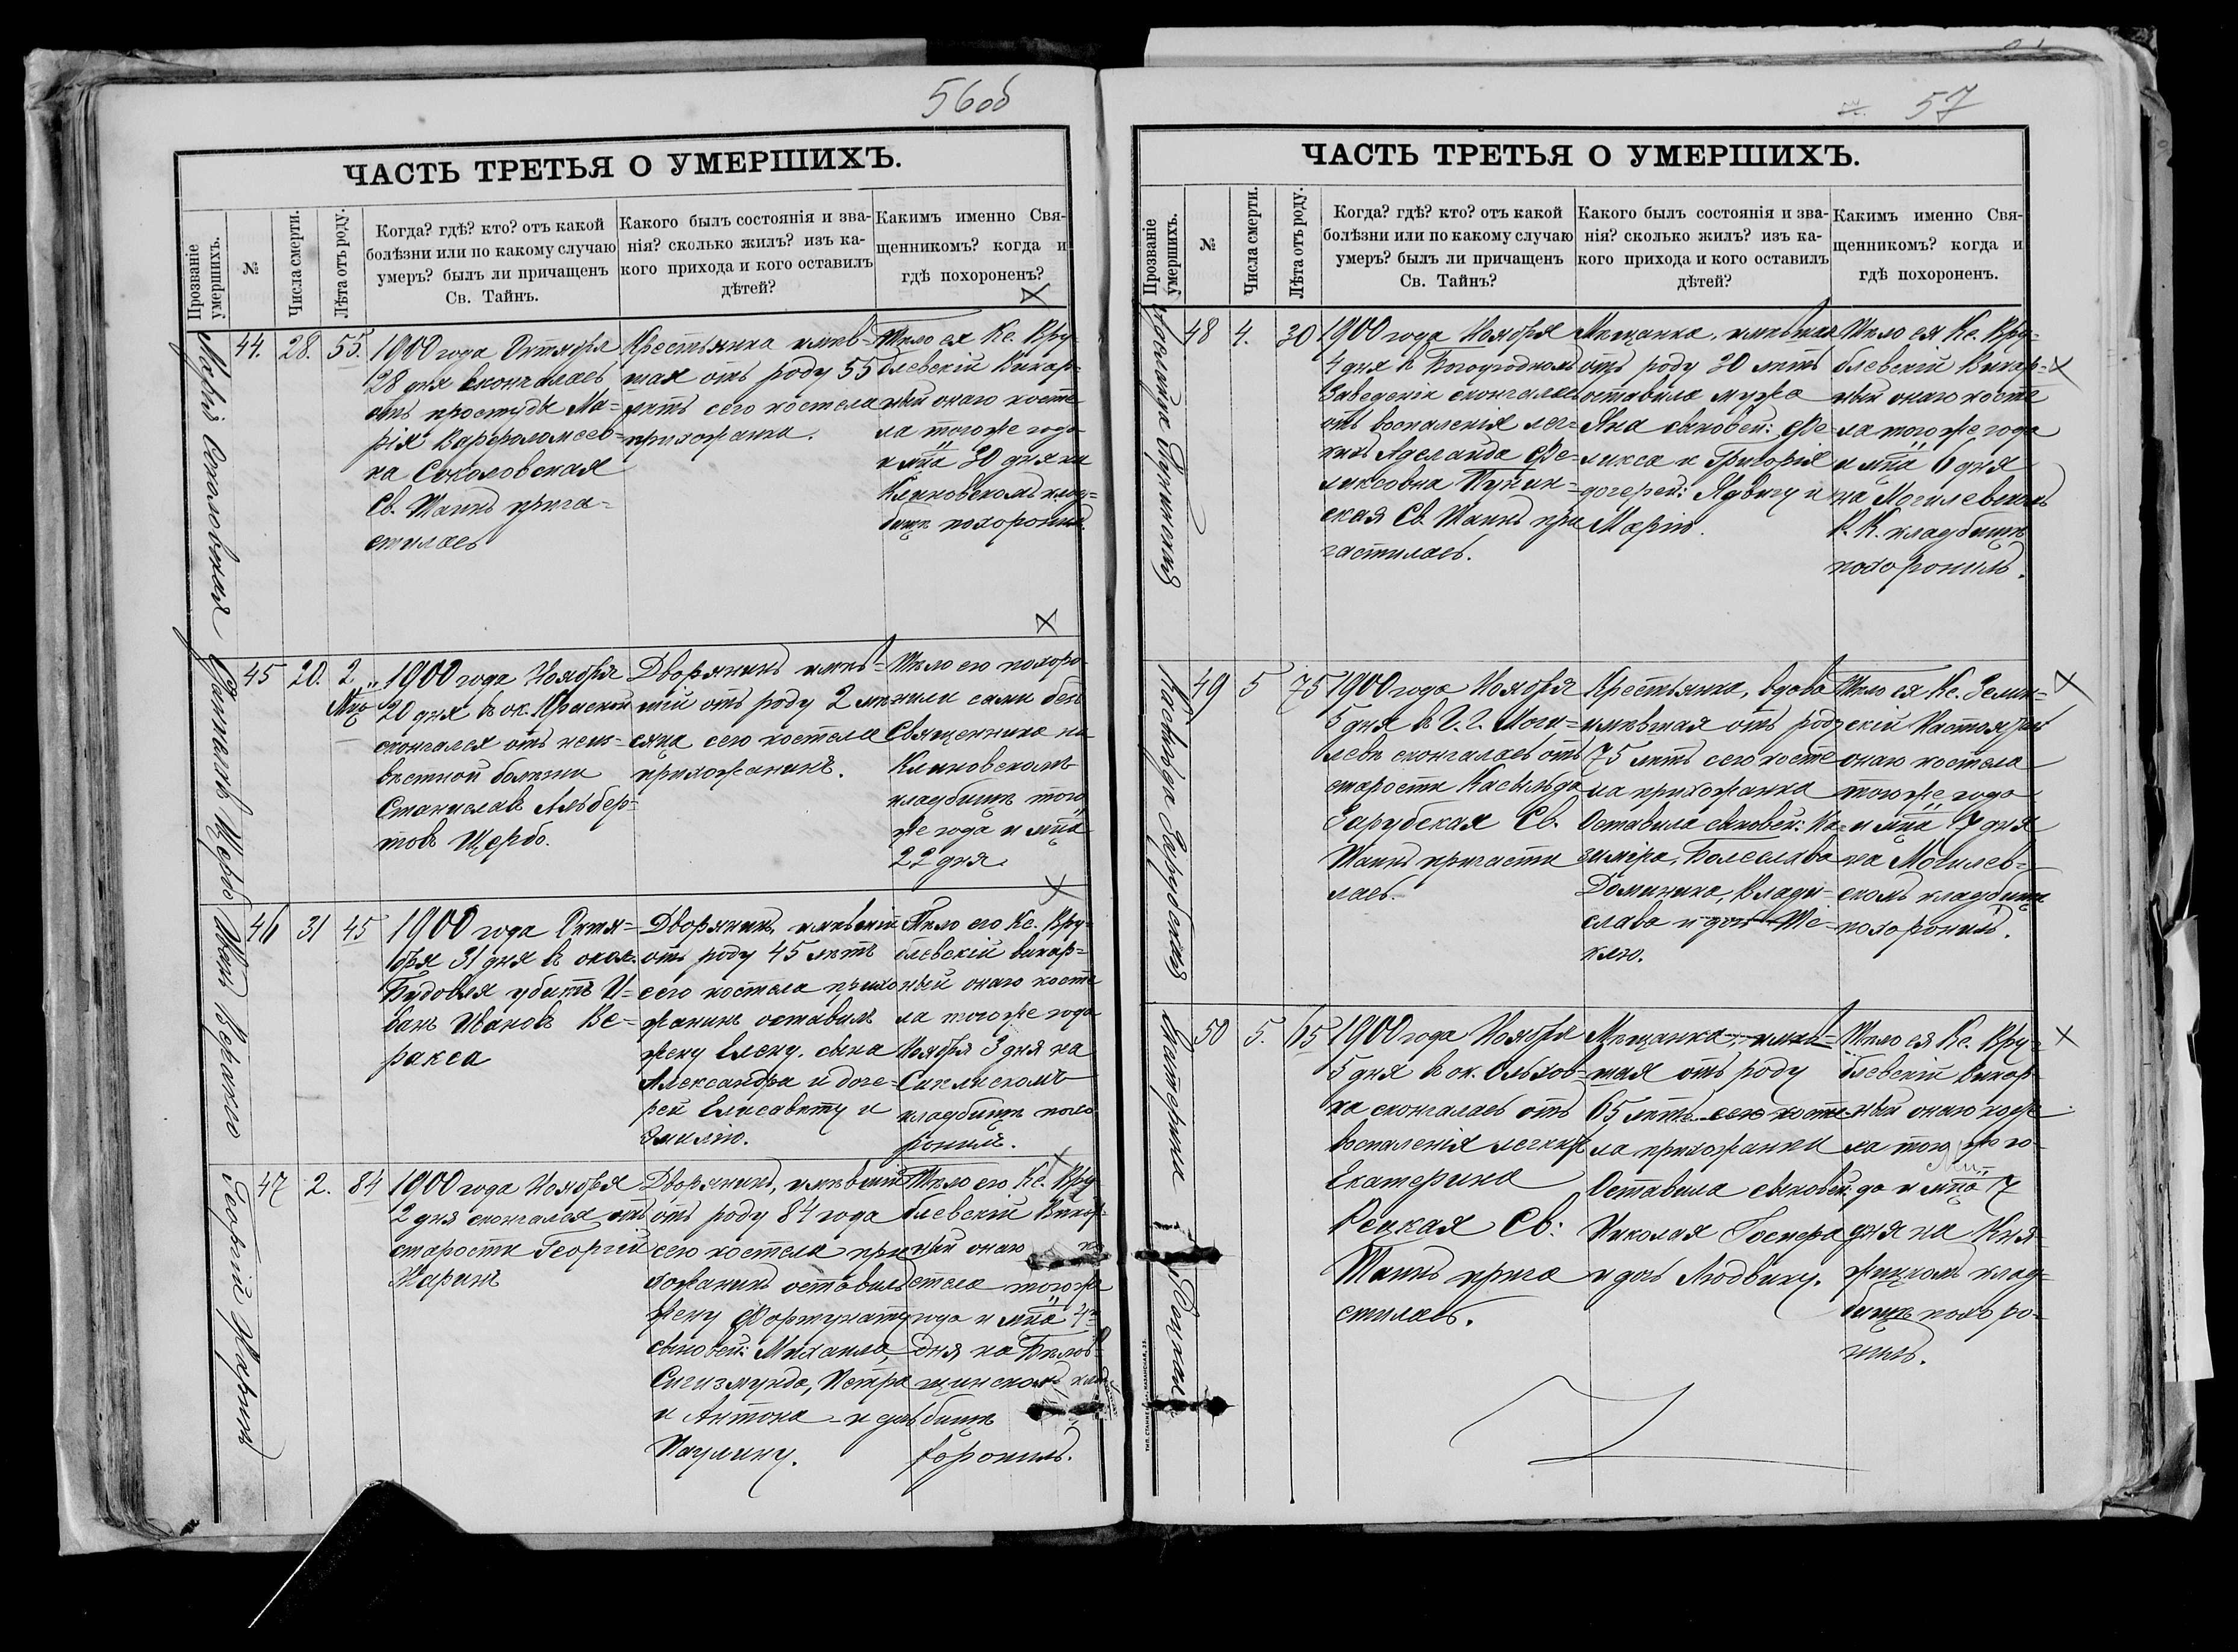 56об
ЧАСТЬ ТРЕТЬЯ О УМЕРШИХЪ.
Прозваніе умершихъ.
№
Числа смерти.
Лѣта отъ роду.
Когда? гдѣ? кто? отъ какой
болѣзни или по какому случаю
умеръ? былъ ли причащенъ
Св. Тайнъ.
Какого былъ состоянія и зва-
нія? сколько жилъ? изъ ка-
кого прихода и кого оставилъ
дѣтей?
Какимъ именно Свя-
щенникомъ? когда и
гдѣ похороненъ?
Марія Соколовская
44. 28. 55.
1900 года Октября
28 дня скончалась
отъ простуды Ма-
рія Варфоломеев-
на Соколовская
Св. Таинъ прича-
стилась
Крестьянка имѣв-
шая отъ роду 55
лѣтъ сего костела
прихожанка.
Тѣло ея Кс. Вру-
блевскій Викар-
ный онаго косте
ла того же года
и мца 30 дня на
Клиновскомъ клад-
бищѣ похоронилъ
Станиславъ Щербо
45 20. 2
Мца
1900 года Ноября
20 дня въ ок. Красной
скончался отъ неиз-
вѣстной болѣзни
Станиславъ Альбер-
товъ Щербо.
Дворянинъ имѣв-
шій отъ роду 2 мѣ-
сяца сего костела
прихожанинъ.
Тѣло его похоро-
нили сами безъ
Священника на
Клиновскомъ
кладбищѣ того
же года и мца
22 дня
Иванъ Веракса
46 31 45
1900 года Октя-
бря 31 дня въ окол.
Будовля убитъ И-
ванъ Ивановъ Ве-
ракса
Дворянинъ, имѣвшій
отъ роду 45 лѣтъ
сего костела прихо
жанинъ оставилъ
жену Елену, сына
Александра и доче-
рей Елисавету и
Эмилію.
Тѣло его Кс. Вру-
блевскій викар-
ный онаго косте
ла того же года
Ноября 3 дня на
Сиклискомъ
кладбищѣ похо
ронилъ.
Георгій Жаринъ
47 2. 84
1900 года Ноября
2 дня скончался отъ
старости Георгій
Жаринъ
Дворянинъ, имѣвшій
отъ роду 84 года
сего костела при
хожанинъ оставилъ
жену Фортунату
сыновей: Михаила,
Сигизмунда, Петра
и Антона и дочь
Паулину.
Тѣло его Кс. Вру
блевскій Викар-
ный онаго ко
стела того же
года и мца 4го
дня на Бѣлов-
щинскомъ клад
бищѣ
хоронилъ.
57
ЧАСТЬ ТРЕТЬЯ О УМЕРШИХЪ.
Прозваніе умершихъ.
№
Числа смерти.
Лѣта отъ роду.
Когда? гдѣ? кто? отъ какой
болѣзни или по какому случаю
умеръ? былъ ли причащенъ
Св. Тайнъ?
Какого былъ состоянія и зва-
нія? сколько жилъ? изъ ка-
кого прихода и кого оставилъ
дѣтей?
Какимъ именно Свя-
щенникомъ? когда и
гдѣ похороненъ.
Аделаида Пунинская
48 4. 30
1900 года Ноября
4 дня въ Богоугодномъ
Заведеніи скончалась
отъ воспаленія лег-
кихъ Аделаида Фе-
ликсовна Пунин-
ская Св. Таинъ при
частилась.
Мѣщанка, имѣвшая
отъ роду 30 лѣтъ
оставила мужа
Яна сыновей: Фе-
ликса и Григорія
дочерей: Ядвигу и
Марію.
Тѣло ея Кс. Вру-
блевскій Викар-
ный онаго косте
ла того же года
и мца 6 дня
на Могилевскомъ
Р. К. кладбищѣ
похоронилъ.
Касильда Зарубская
49 5 75
1900 года Ноября
5 дня въ Г. Г. Моги-
левѣ скончалась отъ
старости Касильда
Зарубская Св.
Таинъ причасти
лась.
Крестьянка, вдова
имѣвшая отъ роду
75 лѣтъ сего косте
ла прихожанка
Оставила сыновей: Ка-
зиміра, Болеслава
Доминика, Влади-
слава и дочь Те-
клю.
Тѣло ея Кс. Зелин-
скій Настоятель
онаго костела
того же года
и мца 7 дня
на Могилев-
скомъ кладбищѣ
похоронилъ.
Екатерина Рецкая
50 5. 65
1900 года Ноября
5 дня въ ок. Ольхов-
ка скончалась отъ
воспаленія легкихъ
Екатерина
Рецкая Св.
Таинъ прича
стилась.
Мѣщанка, имѣв-
шая отъ роду
65 лѣтъ сего косте
ла прихожанка
Оставила сыновей:
Николая Госпера
и дочь Людвику.
Тѣло ея Кс. Вру-
блевскій Викар-
ный онаго косте
ла того же го-
да и мца 7
дня на Кня-
жицкомъ клад-
бищѣ похоро-
нилъ.